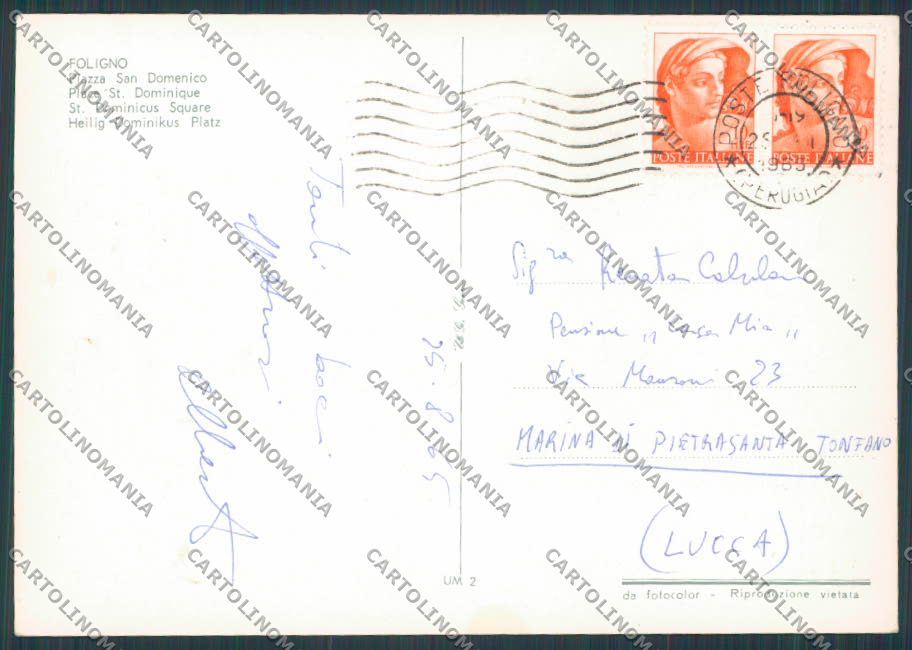 FOLIGNO
Piazza San Domenico
Place St. Dominique
St. Dominicus Square
Heilig Dominikus Platz
Tanti baci
affettuosi
25.8.65
POSTE ITALIANE
POSTE ITALIANE
POSTE FOLIGNO
1965
(PERUGIA)
Sig.ra Renata
Pensione "Casa Mia"
Via Manzoni 23
MARINA DI PIETRASANTA TONFANO
(LUCCA)
UM 2
da fotocolor - Riproduzione vietata
CARTOLINOMANIA